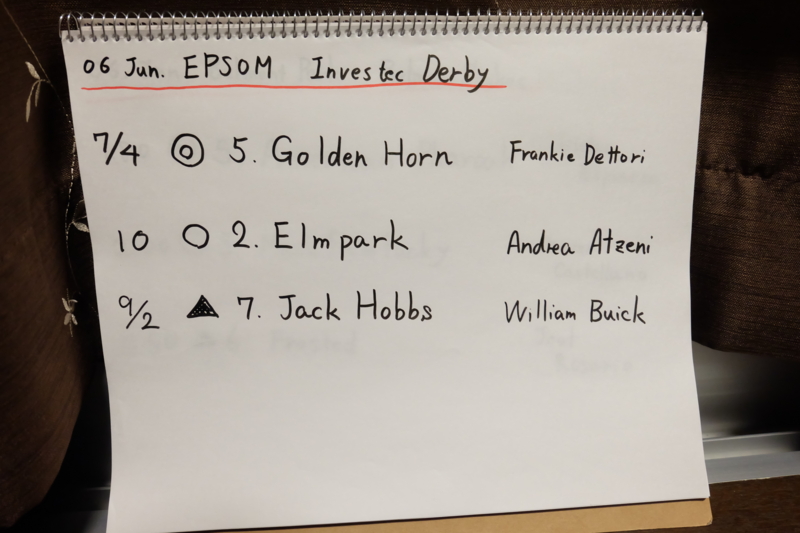 06 Jun. EPSOM Investec Derby
7/4 ◎ 5. Golden Horn Frankie Dettori
10 ○ 2. Elm park Andrea Atzeni
9/2 ▲ 7. Jack Hobbs William Buick